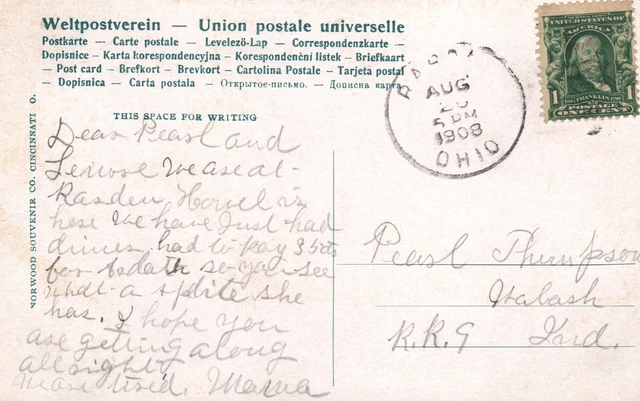 Weltpostverein — Union postale universelle
Postkarte — Carte postale — Levelező-Lap — Correspondenzkarte —
Dopisnice — Karta korespondencyjna — Korespondenční listek — Briefkaart
— Post card — Brefkort — Brevkort — Cartolina Postale — Tarjeta postal
— Dopisnica — Carta postala — Открытое-письмо. — Дописна карта.
THIS SPACE FOR WRITING
NORWOOD SOUVENIR CO. CINCINNATI O.
UNITED STATES OF
AMERICA
FRANKLIN
1 POSTAGE 1
ONE CENT
AUG
5 PM
1908
OHIO
Dear Pearl and
we are at
is
here we have Just had
dinner had to pay
for so you see
what a she
has. I hope you
are getting along
all right
we are tired. Mama
Pearl Thompson
Wabash
R.R. 9 Ind.